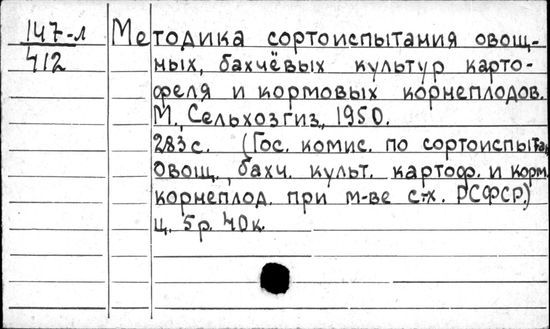 147-л
412
Методика сортоиспытания овощ-
ных, бахчёвых культур карто-
феля и кормовых корнеплодов.
М., Сельхозгиз, 1950.
283 с. (Гос. комис. по сортоиспытан.
овощ., бахч. культ. картоф. и корм.
корнеплод. при м-ве с-х. РСФСР)
ц. 5 р. 40 к.